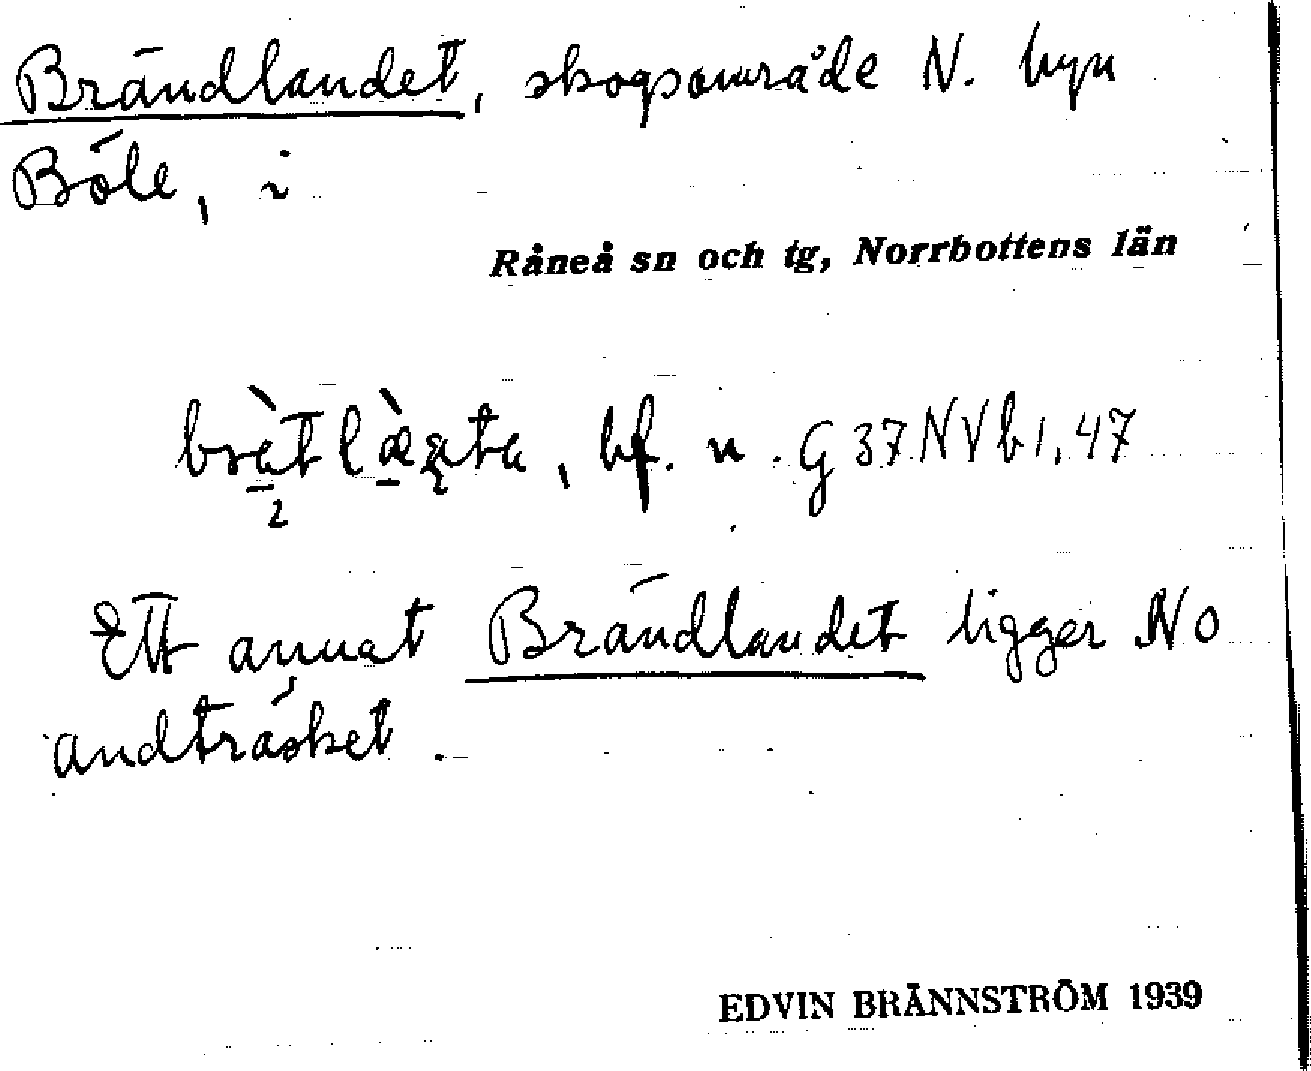 Brändlandet, skogsområde N. byn
Böle, i
Råneå sn och tg, Norrbottens län
bf. n. G 37 NVb1, 47
Ett annat Brändlandet ligger No
andträsket.
EDVIN BRÄNNSTRÖM 1939